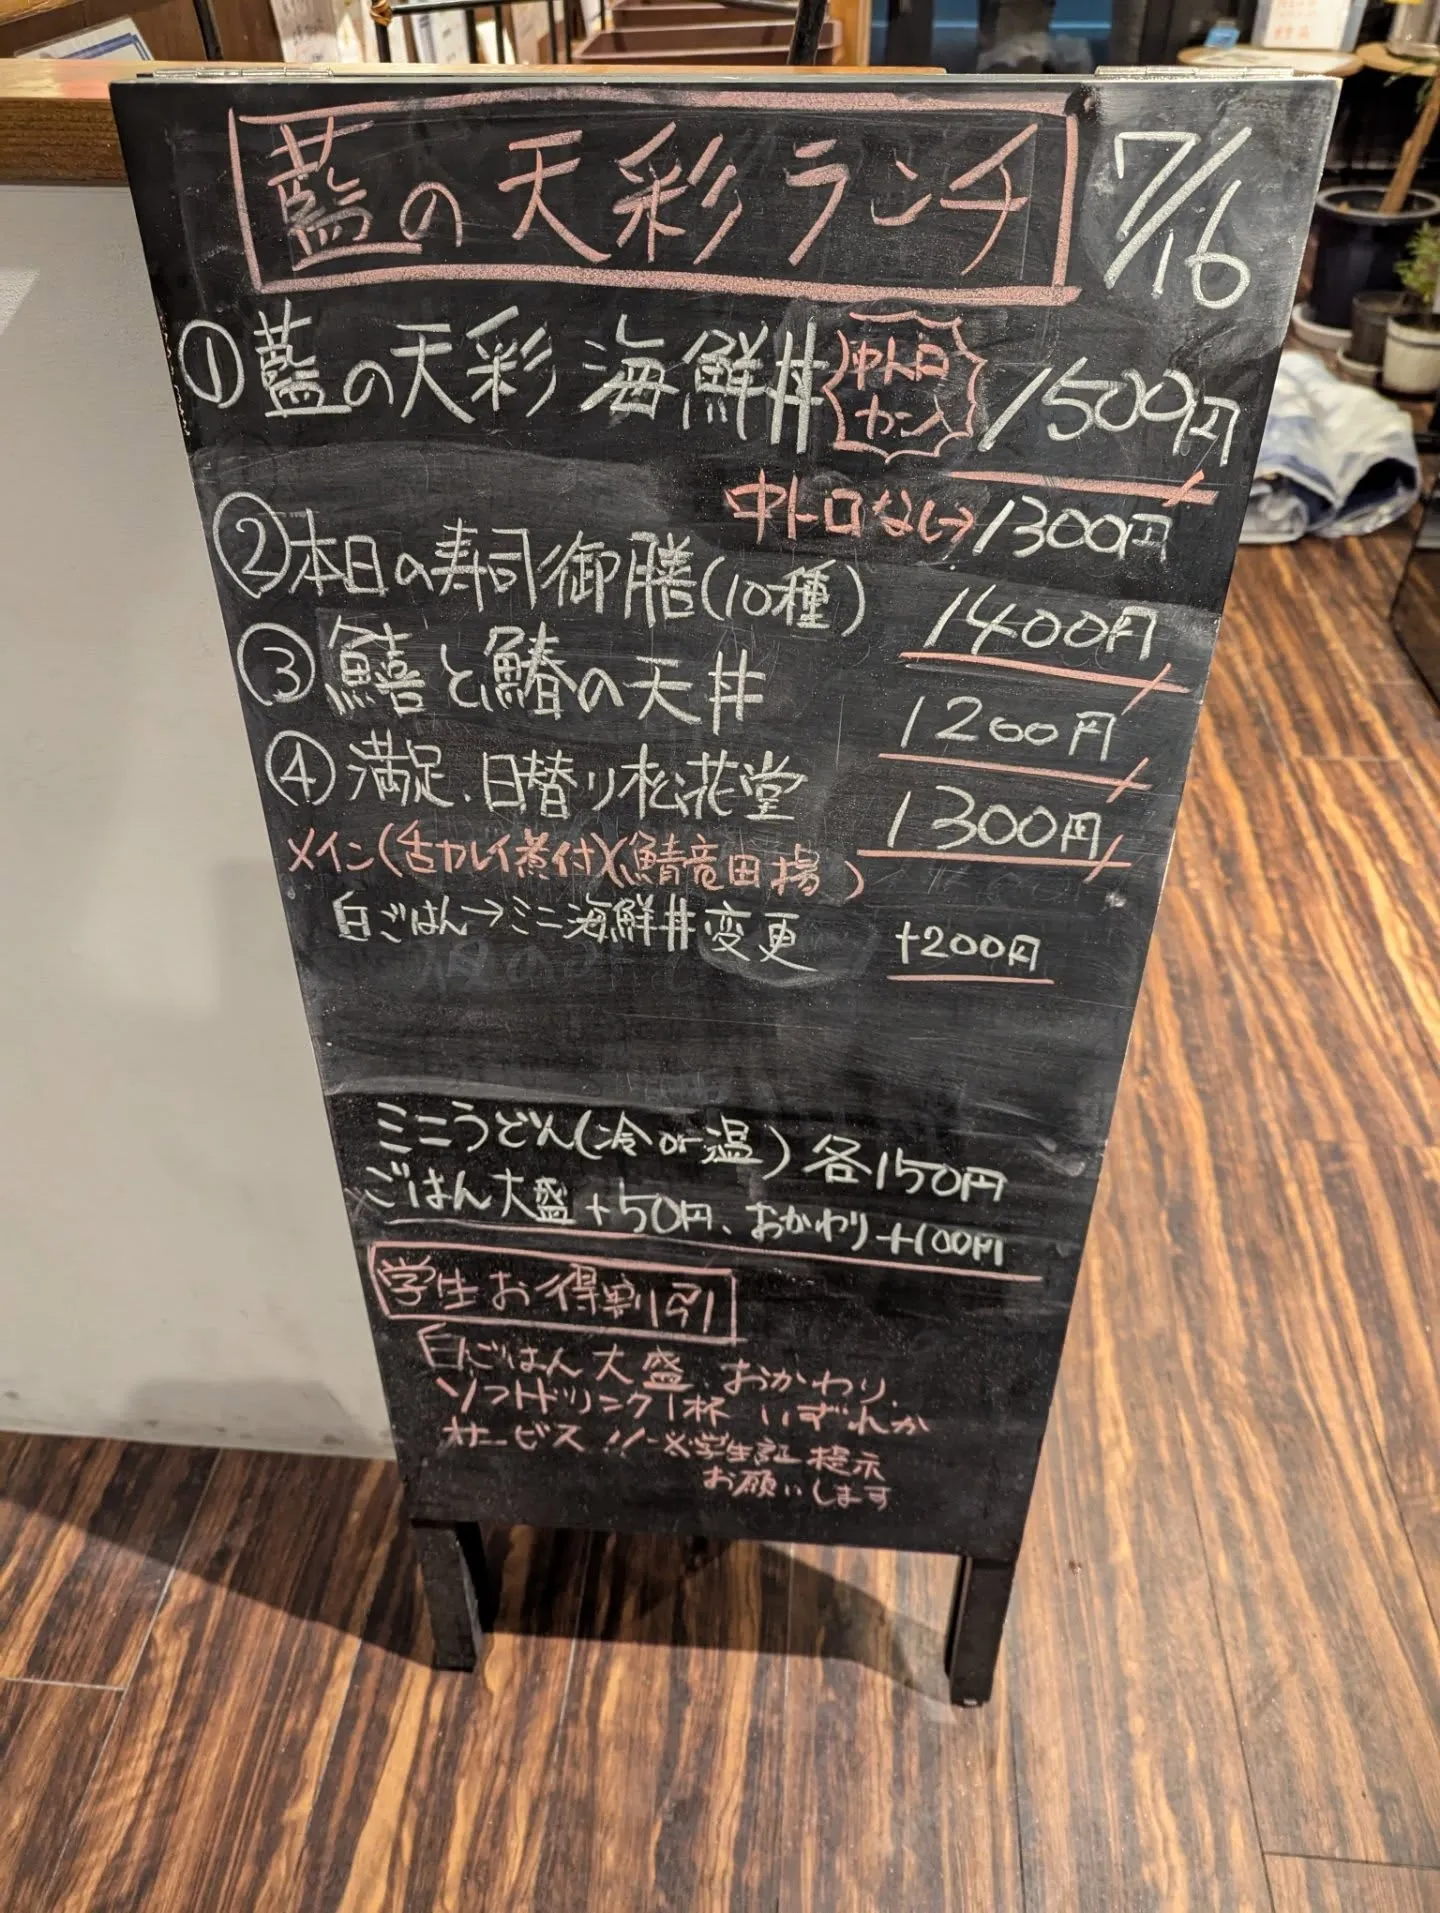 藍の天彩ランチ 7/16
①藍の天彩 海鮮丼 中トロカン 1500円
中トロなし→1300円
②本日の寿司御膳(10種) 1400円
③鱚と鰆の天丼 1200円
④満足、日替り松花堂 1300円
メイン(舌カレイ煮付)(鯖竜田揚)
白ごはん→ミニ海鮮丼変更 +200円
ミニうどん(冷or温)各150円
ごはん大盛+50円、おかわり+100円
学生お得割引
白ごはん大盛、おかわり、
ソフトドリンク1杯 いずれか
サービス!!※学生証提示
お願いします